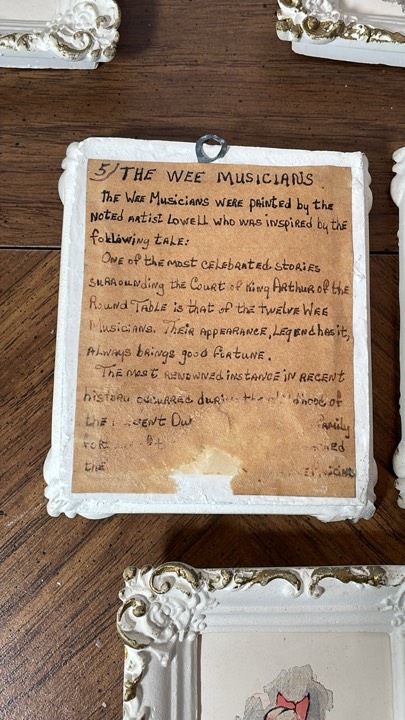 5/ THE WEE MUSICIANS
The Wee Musicians were painted by the
noted artist Lowell who was inspired by the
following tale:
One of the most celebrated stories
surrounding the Court of King Arthur of the
Round Table is that of the twelve Wee
Musicians. Their appearance, Legend has it,
always brings good fortune.
The most renowned instance in recent
history occurred during the childhood of
the
the